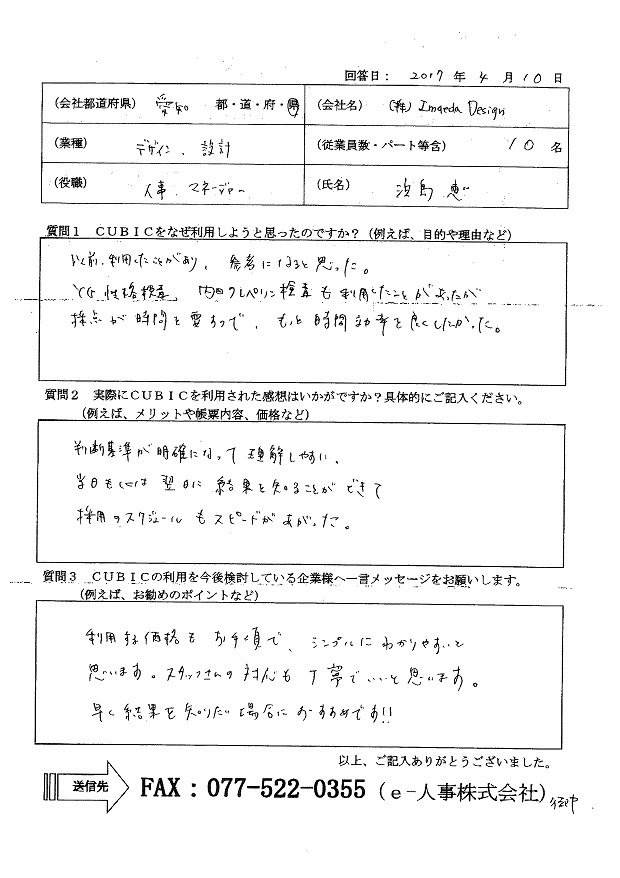 回答日： 2017 年 4 月 10 日
（会社都道府県） 愛知 都・道・府・県
（会社名） （株） Imaeda Design
（業種） デザイン、設計
（従業員数・パート等含） 10 名
（役職） 人事 マネージャー
（氏名） 浜島 恵
質問１ ＣＵＢＩＣをなぜ利用しようと思ったのですか？（例えば、目的や理由など）
以前、利用したことがあり、参考になると思った。
YG性格検査、内田クレペリン検査も利用したことがあったが
採点が時間を要するので、もっと時間効率を良くしたかった。
質問２ 実際にＣＵＢＩＣを利用された感想はいかがですか？具体的にご記入ください。
（例えば、メリットや帳票内容、価格など）
判断基準が明確になって理解しやすい。
当日もしくは翌日に結果を知ることができて
採用のスケジュールもスピードがあがった。
質問３ ＣＵＢＩＣの利用を今後検討している企業様へ一言メッセージをお願いします。
（例えば、お勧めのポイントなど）
利用する価格もお手頃で、シンプルにわかりやすいと
思います。スタッフさんの対応も丁寧でいいと思います。
早く結果を知りたい場合におすすめです!!
以上、ご記入ありがとうございました。
送信先 FAX：077-522-0355（e-人事株式会社）御中